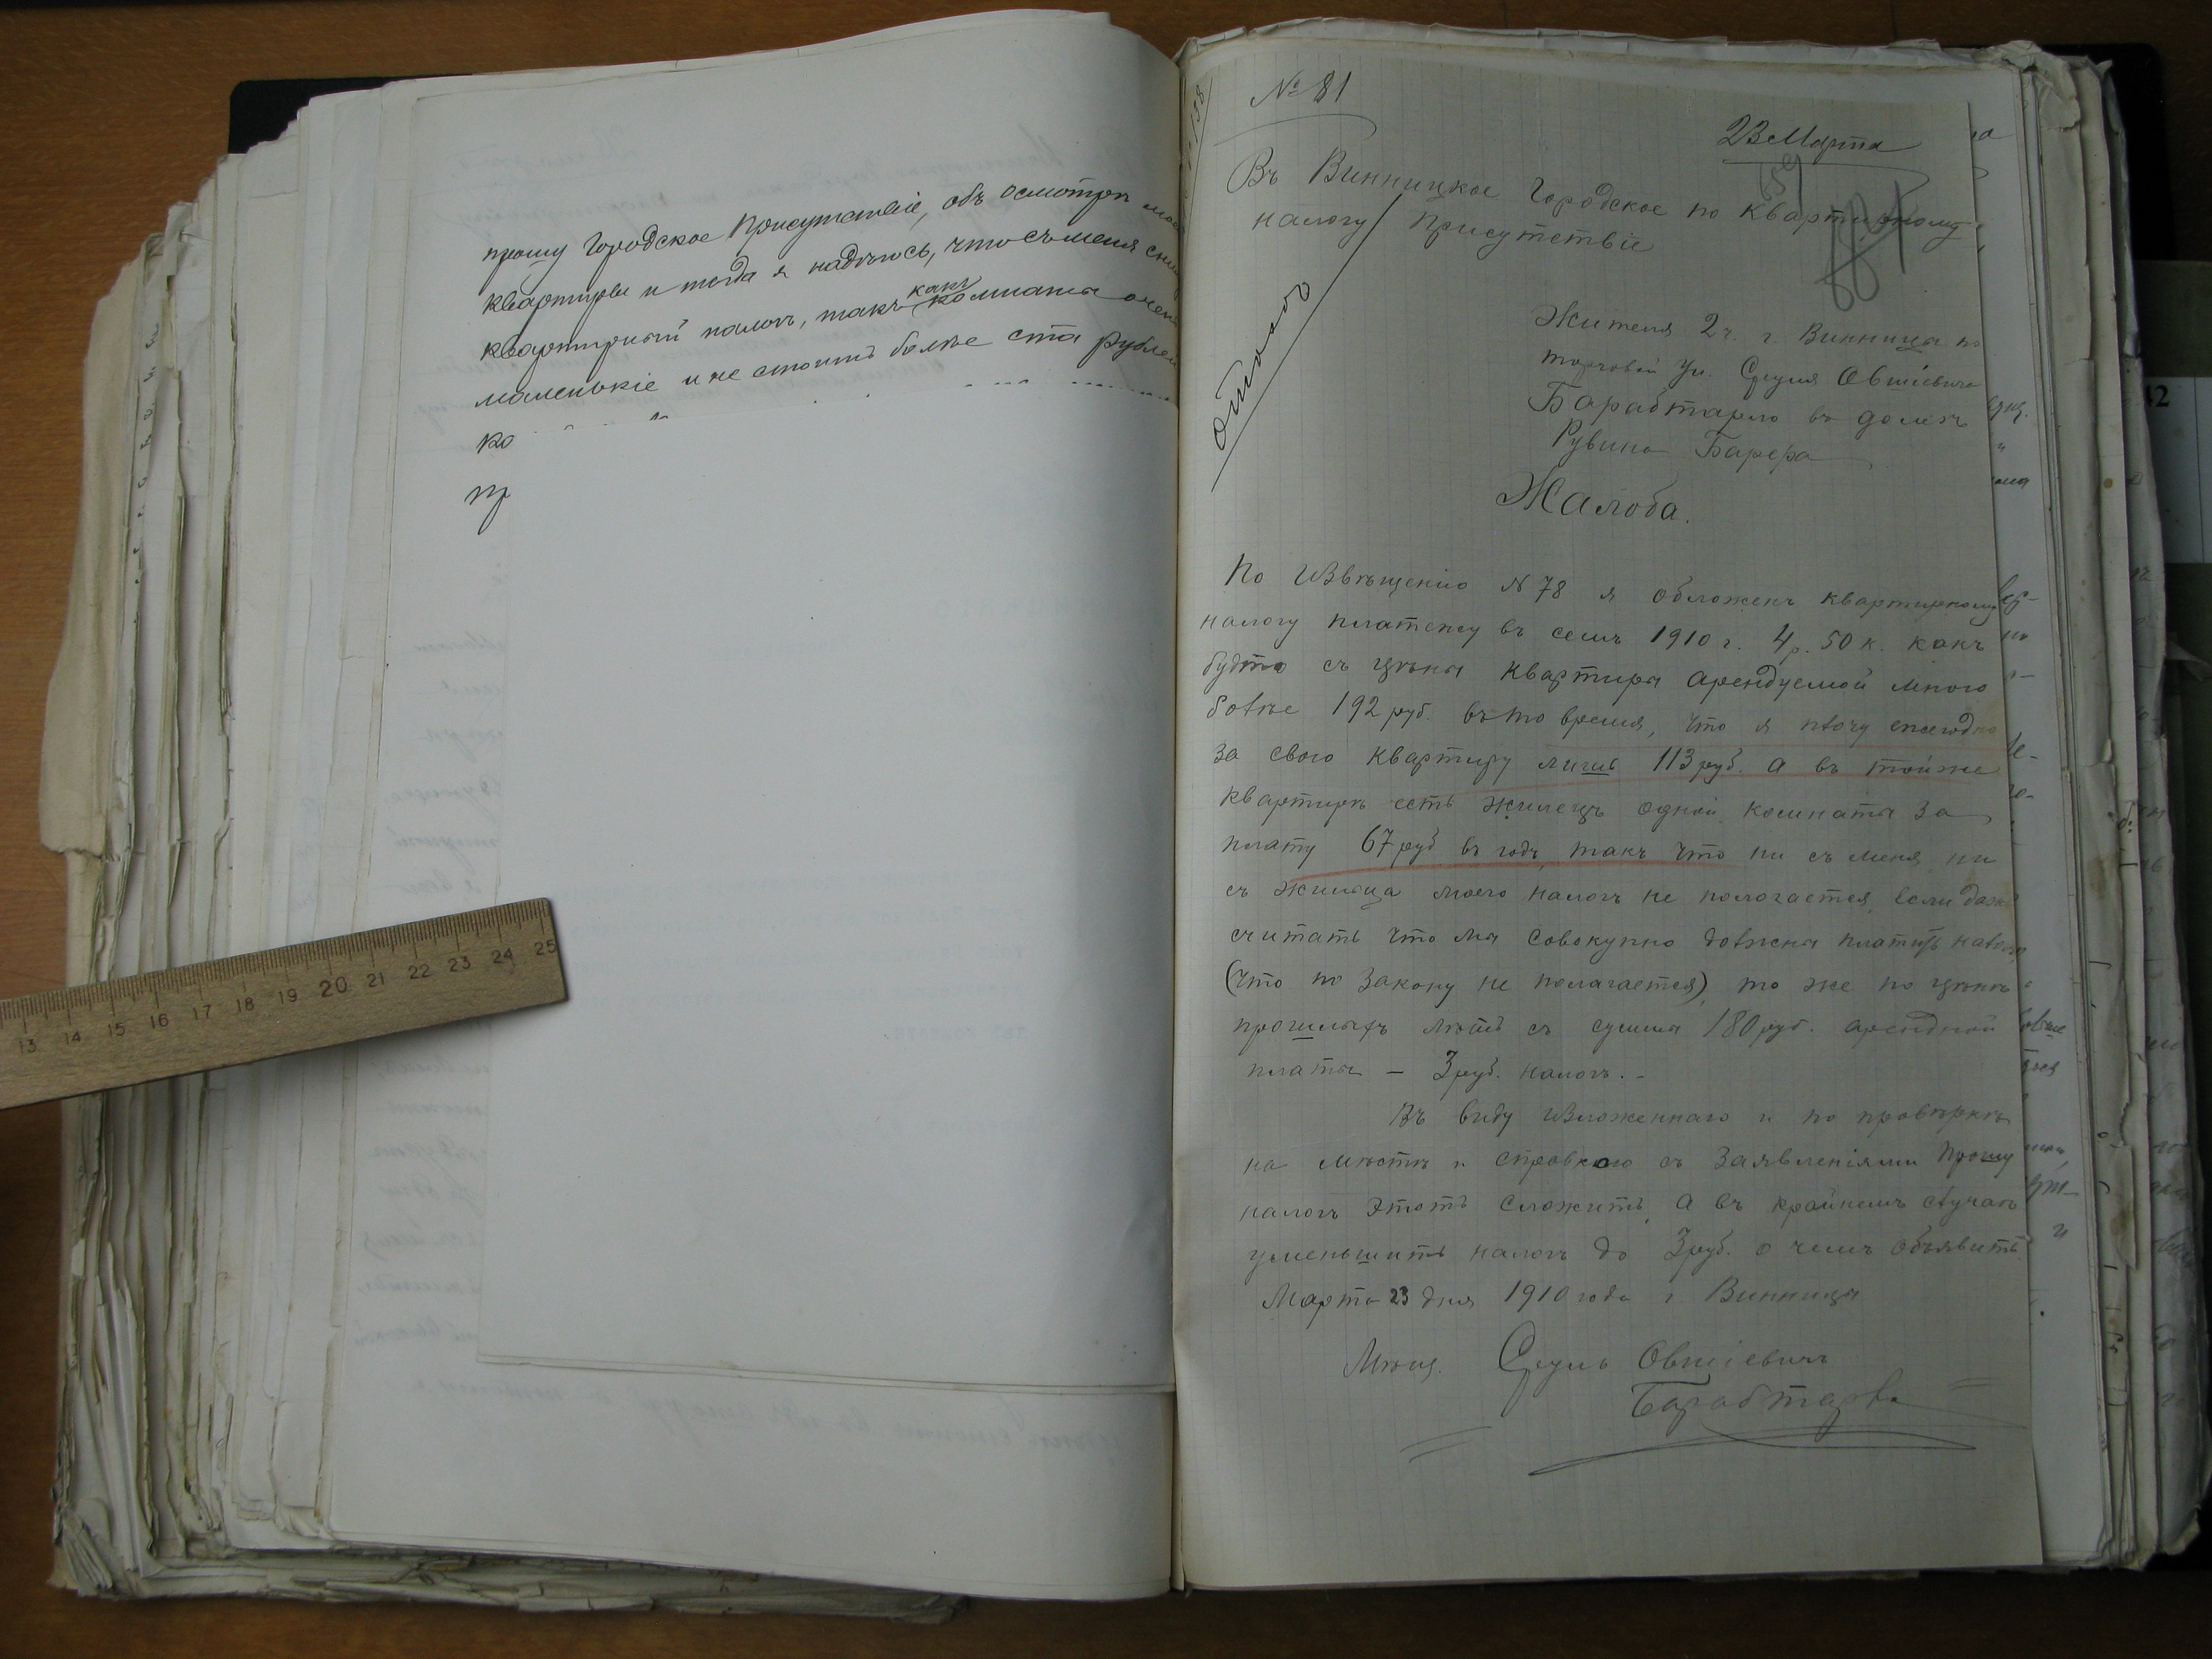 прошу Городское Присутствіе, объ осмотрѣ
квартиры и тогда я надѣюсь, что съ меня
квартирный налогъ, такъ какъ комнаты
маленькіе и не стоитъ болѣе ста рублей
ко
пр
№ 81
23 Марта
Въ Винницкое Городское по квартирному
налогу Присутствіе
Жителя 2 ч. г. Винницы по
торговой ул. Сруля Овшіевича
Барабтарло въ домѣ
Рувина Барера
Жалоба.
По Извѣщенію N 78 я обложенъ квартирному
налогу платежу въ семъ 1910 г. 4 р. 50 к. какъ
будто съ цѣны квартиры арендуемой много
болѣе 192 руб. въ то время, что я плачу ежегодно
за свою квартиру лишь 113 руб. а въ той же
квартирѣ есть жилецъ одной комнаты за
плату 67 руб въ годъ, такъ что ни съ меня ни
съ жильца моего налогъ не пологается, если даже
считать что мы совокупно должны платить налогъ
(что по закону не полагается), то же по цѣнѣ
прошлыхъ лѣтъ съ суммы 180 руб. арендной
платы – 3 руб. налогъ. –
Въ виду изложеннаго и по провѣркѣ
на мѣстѣ и справкою съ заявленіями прошу
налогъ этотъ сложить, а въ крайнемъ случаѣ
уменьшить налогъ до 3 руб. о чемъ объявить
Марта 23 дня 1910 года г. Винница
Мѣщ. Сруль Овшіевичъ
Барабтарло
13 14 15 16 17 18 19 20 21 22 23 24 25